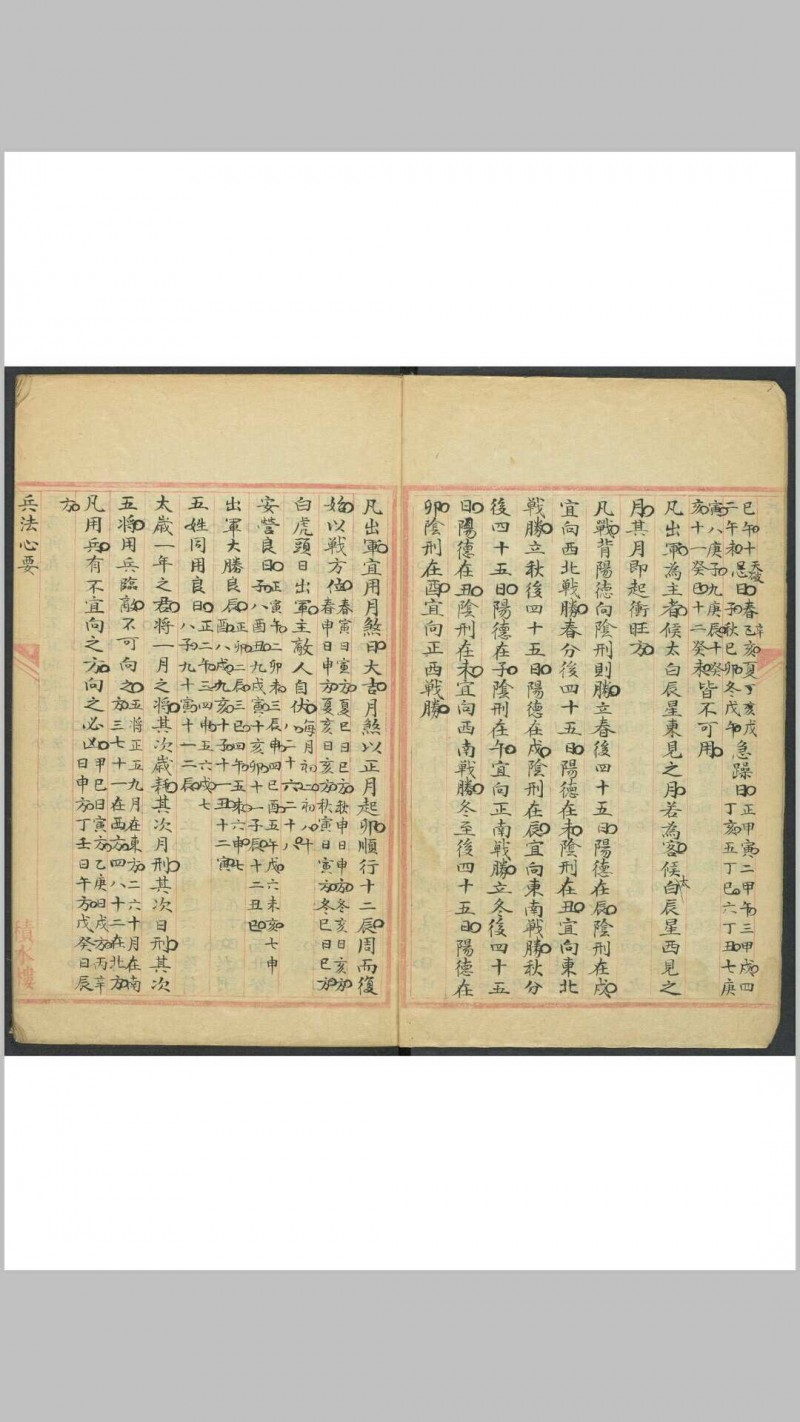 己午十二午和忌日春乙亥夏丁亥戌子秋巳卯冬戊午急躁日正甲寅二甲午三甲戌四丁亥五丁巳六丁丑七庚
寅八庚子九庚辰十癸亥十一癸巳十二癸未皆不可用
凡出軍為主者候太白辰星東見之月若為客候太白辰星西見之
月其月即起衝旺方
凡戰背陽德向陰刑則勝立春後四十五日陽德在辰陰刑在戌
宜向西北戰勝春分後四十五日陽德在未陰刑在丑宜向東北
戰勝立秋後四十五日陽德在戌陰刑在辰宜向東南戰勝秋分
後四十五日陽德在子陰刑在午宜向正南戰勝立冬後四十五
日陽德在丑陰刑在未宜向西南戰勝冬至後四十五日陽德在
卯陰刑在酉宜向正西戰勝
凡出軍宜用月煞日大吉月煞以正月起卯順行十二辰周而復
始以戰方位春寅日寅方夏巳日巳方秋申日申方冬亥日亥方春申日申方夏亥日亥方秋寅日寅方冬巳日巳方
白虎頭日出軍主敵人自伏每月初二初八十八二十六二十八
安營良日正寅二卯三辰四巳五午六未七申八酉九戌十亥十一子十二丑
出軍大勝良辰正卯二辰三巳四午五未六申七酉八戌九亥十子十一丑十二寅
五姓同用良日正二午三四申五六戌七八子九十寅十一十二辰
太歲一年之君將一月之將其次歲耗其次月刑其次日刑其次
五將用兵臨敵不可向之五將正五九月在東方二六十月在南方三七十一在西方四八十二在北方
凡用兵有不宜向之方向之必凶甲巳日寅方乙庚日戌方丙辛日申方丁壬日午方戊癸日辰
方
兵法心要
積水樓